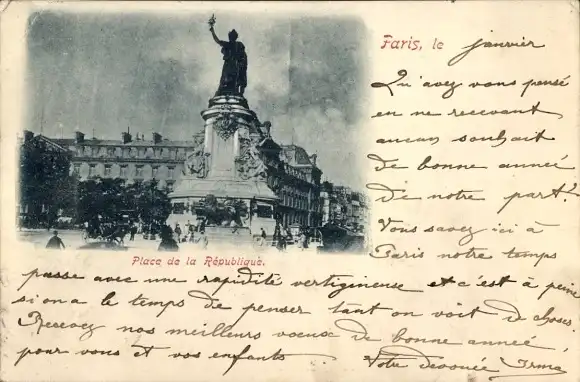 Paris, le janvier
Qu'avez vous pensé
en ne recevant
aucun souhait
de bonne année
de notre part?
Vous savez ici à
Paris notre temps
Place de la République.
passe avec une rapidité vertigineuse et c'est à peine
si on a le temps de penser tant on voit de choses.
Recevez nos meilleurs voeux de bonne année,
pour vous et vos enfants.
Votre dévouée Irma